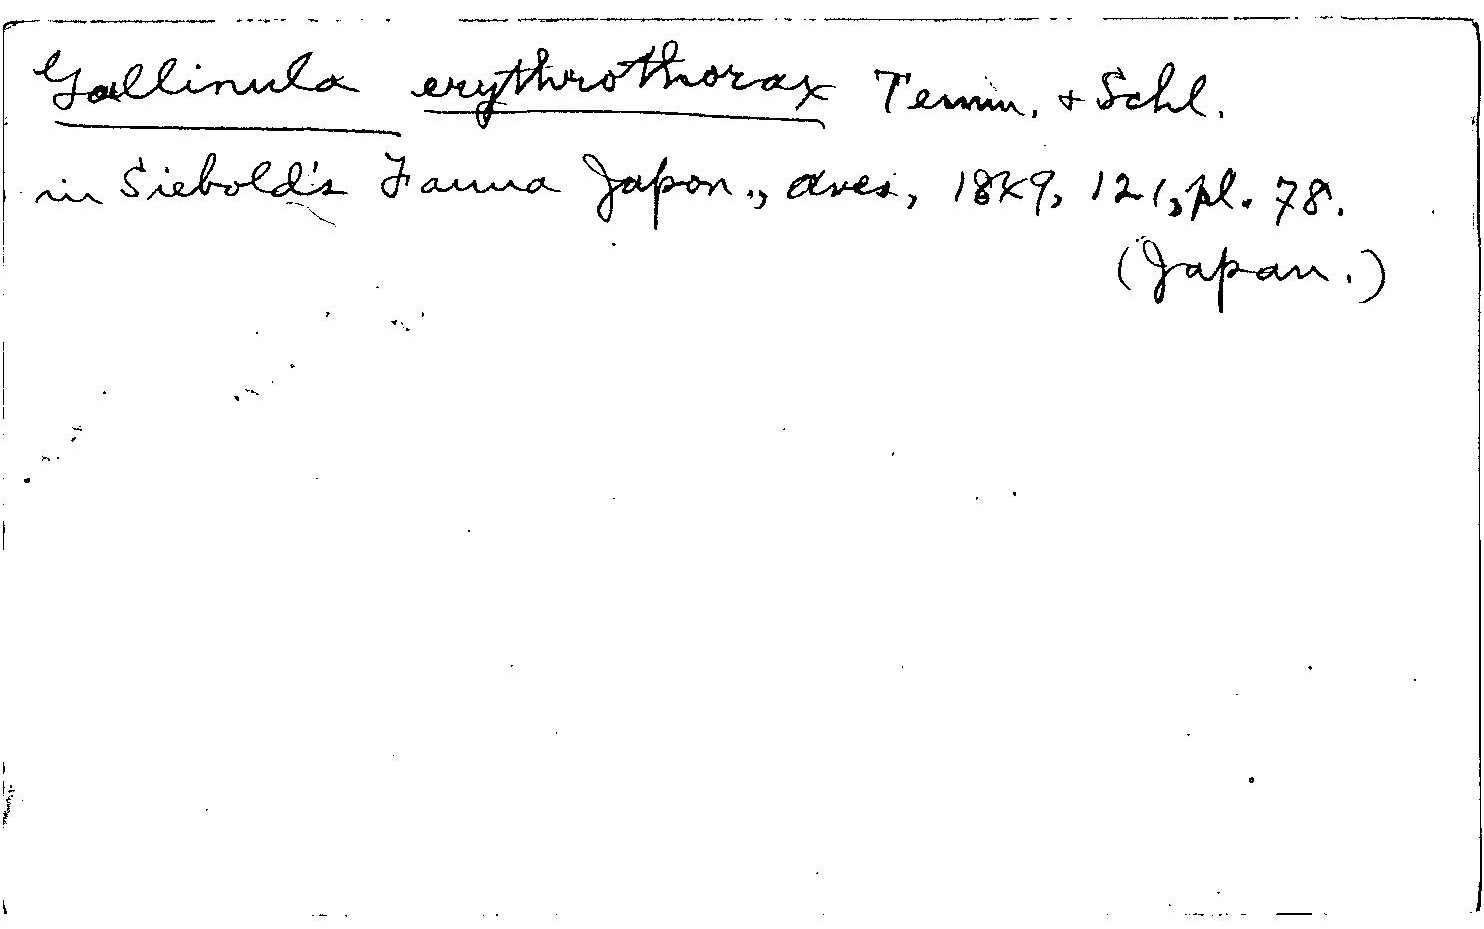 Gallinula erythrothorax Temm. & Schl.
in Siebold's Fauna Japon., Aves, 1849, 121, pl. 78.
(Japan.)